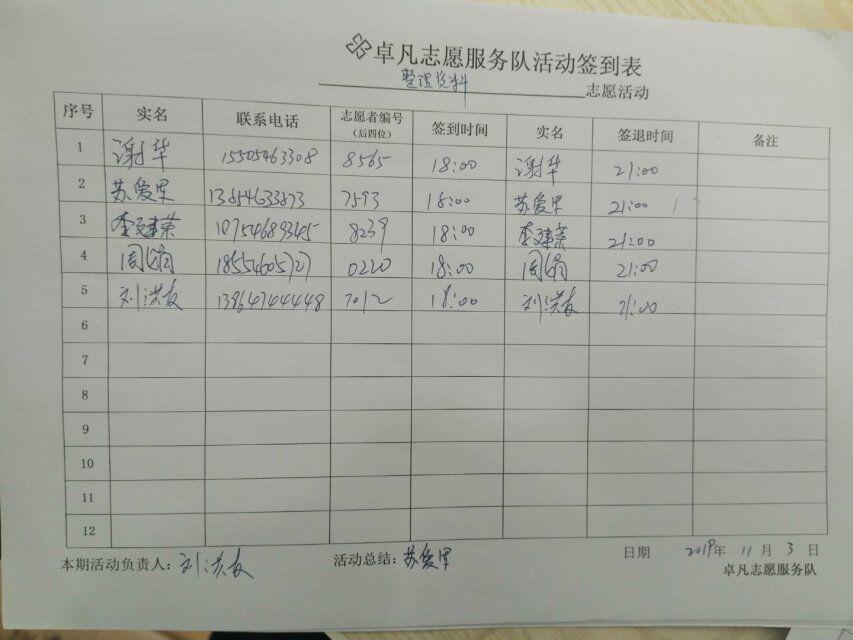 卓凡志愿服务队活动签到表
整理资料 志愿活动
序号 实名 联系电话 志愿者编号(后四位) 签到时间 实名 签退时间 备注
1 谢华 15505463308 8565 18:00 谢华 21:00
2 苏爱星 13854633873 7593 18:00 苏爱星 21:00
3 李建荣 8239 18:00 李建荣 21:00
4 周娟 18554605727 0220 18:00 周娟 21:00
5 刘洪友 13864744448 7012 18:00 刘洪友 21:00
6
7
8
9
10
11
12
本期活动负责人:刘洪友 活动总结:苏爱星 日期 2019年 11月 3日
卓凡志愿服务队